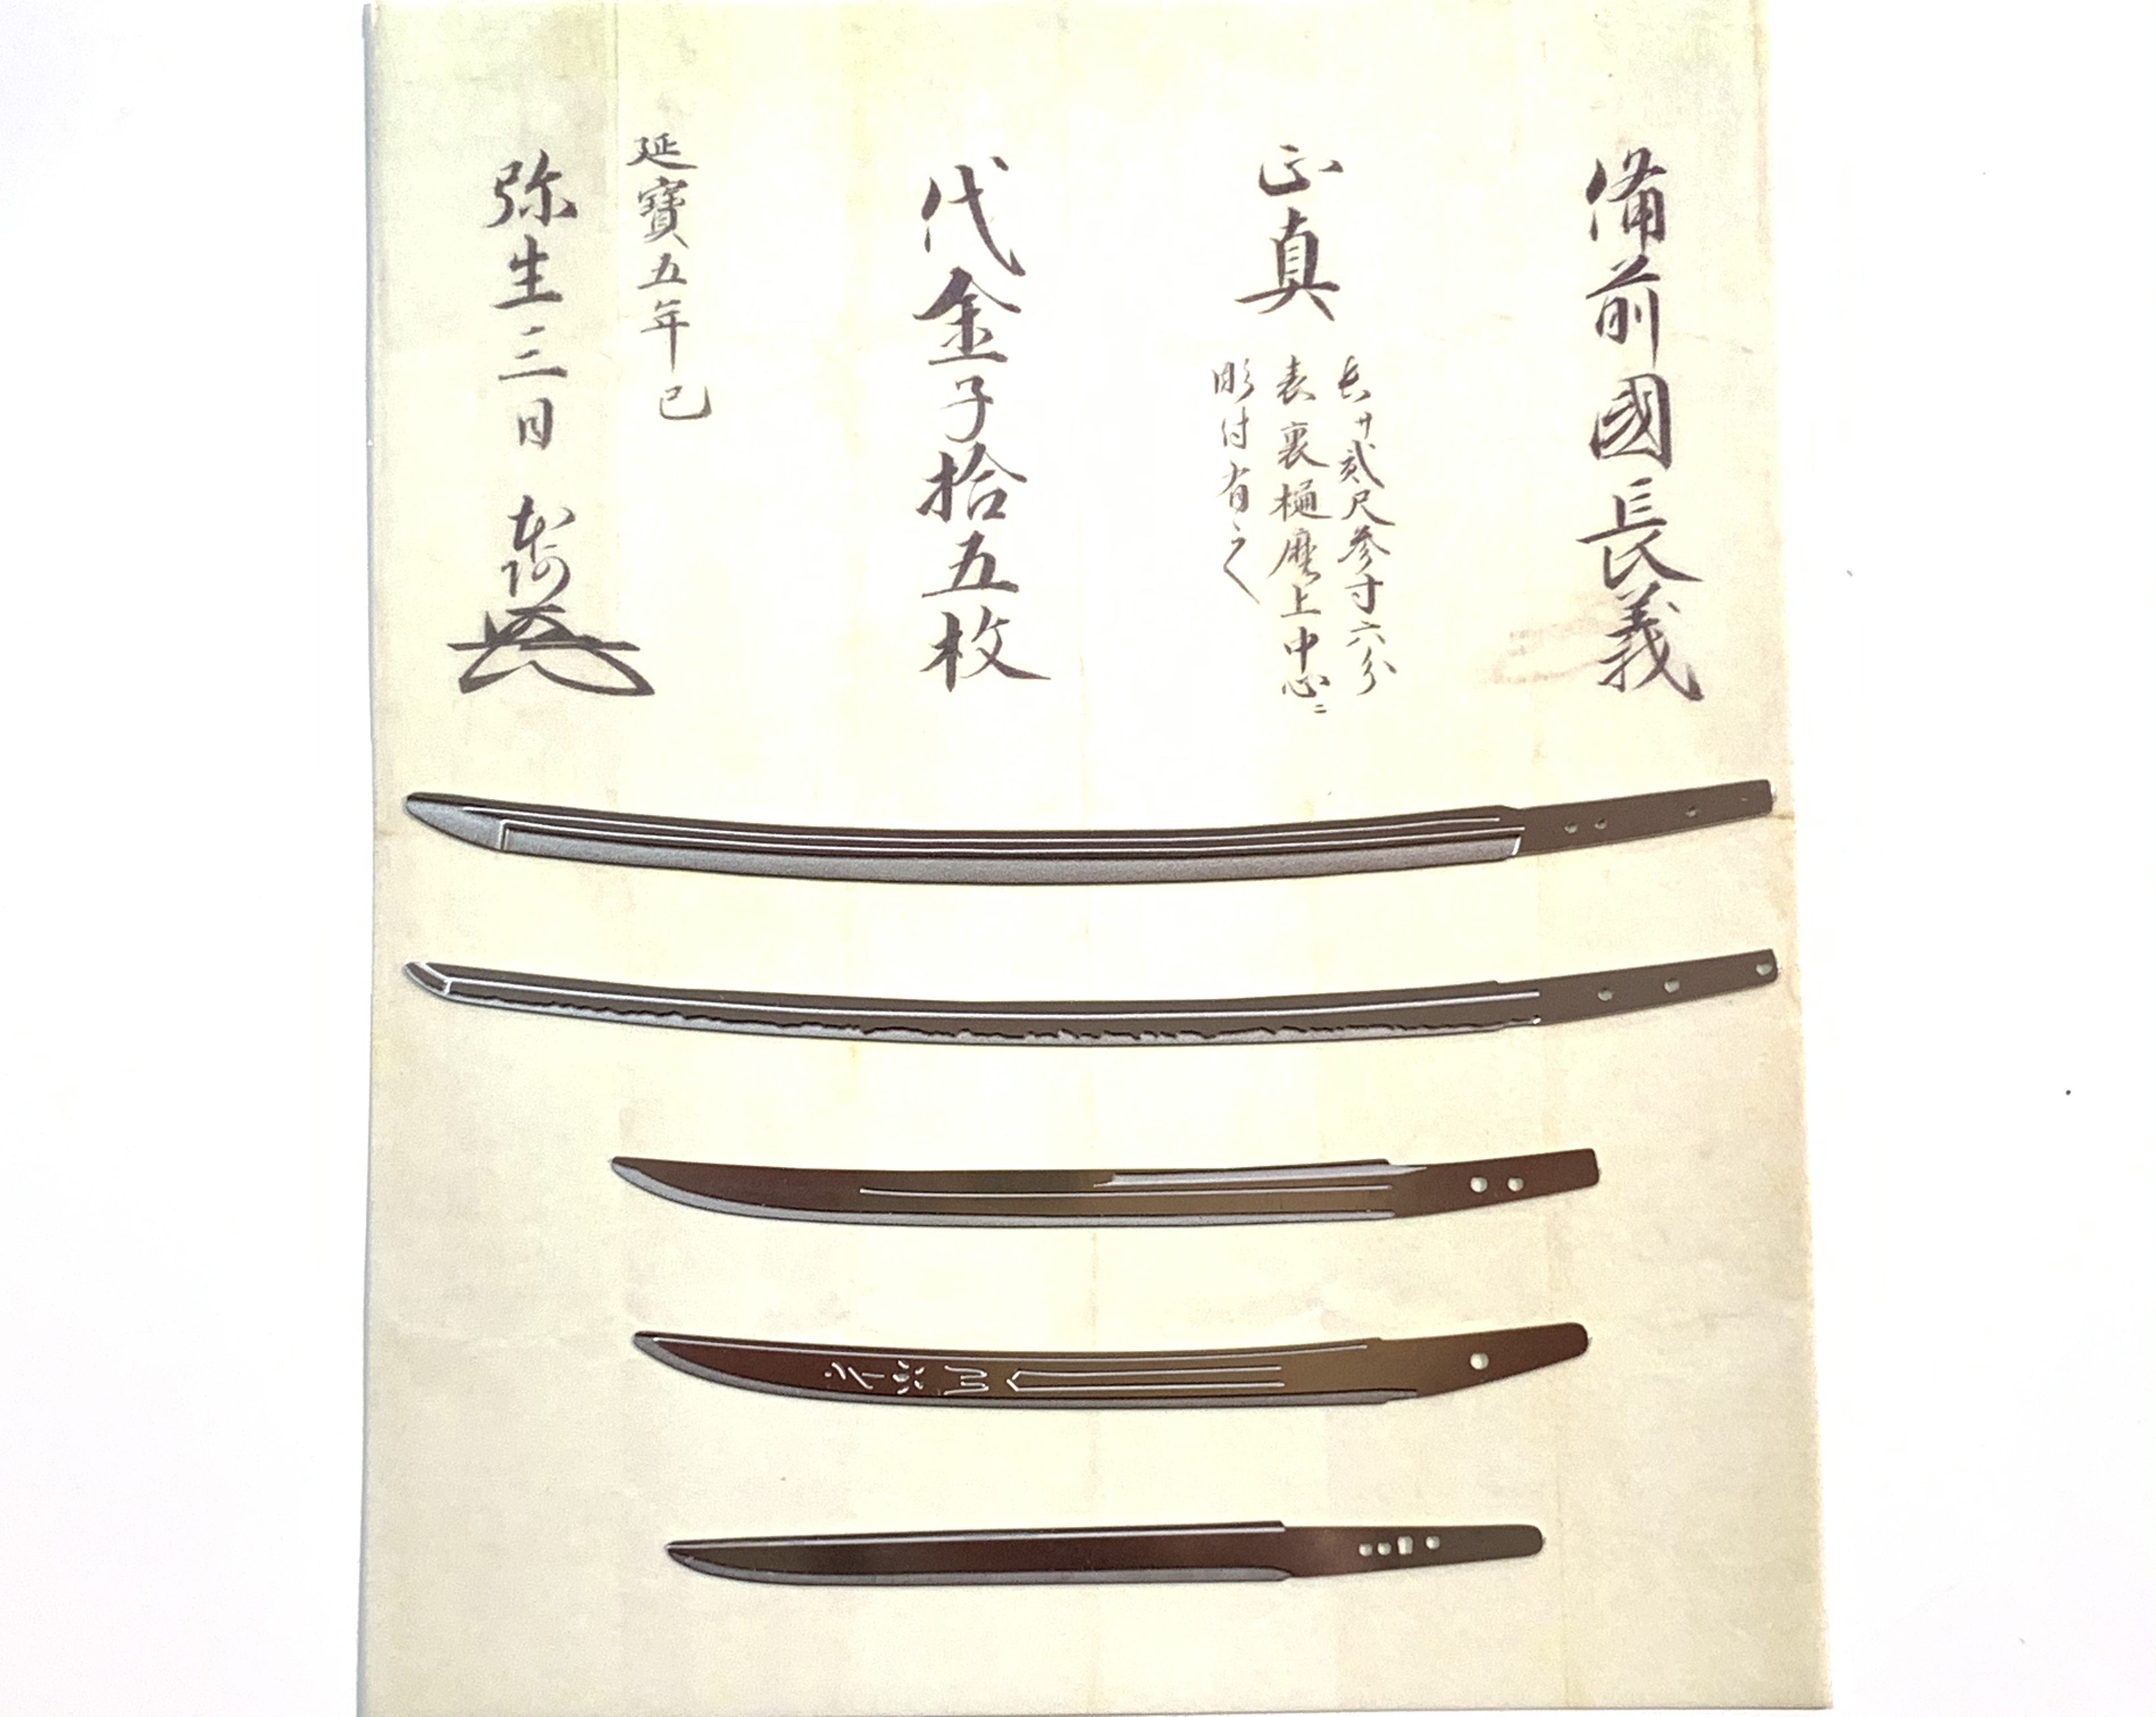 備前國長義
正真
長サ貳尺参寸六分
表裏樋磨上中心ニ
彫付有之
代金子拾五枚
延寶五年巳
弥生三日 本阿